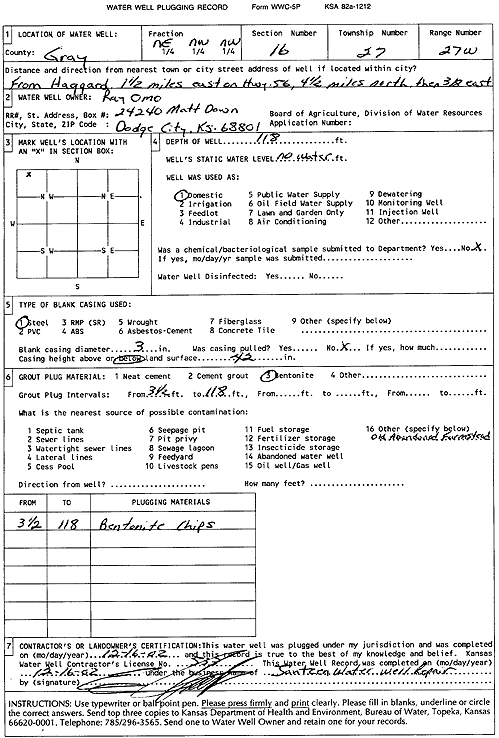 WATER WELL PLUGGING RECORD Form WWC-5P KSA 82a-1212
1 LOCATION OF WATER WELL: Fraction Section Number Township Number Range Number
County: Gray NE 1/4 NW 1/4 NW 1/4 16 27 27W
Distance and direction from nearest town or city street address of well if located within city?
From Haggard, 1½ miles east on Hwy. 56, 4½ miles north, then 3/8 east
2 WATER WELL OWNER: Ray Omo
RR#, St. Address, Box #: 24240 Matt Down Board of Agriculture, Division of Water Resources
City, State, ZIP Code : Dodge City, KS. 68801 Application Number:
3 MARK WELL'S LOCATION WITH AN "X" IN SECTION BOX:
N
X
N W N E
W E
S W S E
S
4 DEPTH OF WELL......118......ft.
WELL'S STATIC WATER LEVEL no water ft.
WELL WAS USED AS:
1 Domestic 5 Public Water Supply 9 Dewatering
2 Irrigation 6 Oil Field Water Supply 10 Monitoring Well
3 Feedlot 7 Lawn and Garden Only 11 Injection Well
4 Industrial 8 Air Conditioning 12 Other...........
Was a chemical/bacteriological sample submitted to Department? Yes....No X.
If yes, mo/day/yr sample was submitted..............
Water Well Disinfected: Yes...... No......
5 TYPE OF BLANK CASING USED:
1 Steel 3 RMP (SR) 5 Wrought 7 Fiberglass 9 Other (specify below)
2 PVC 4 ABS 6 Asbestos-Cement 8 Concrete Tile
Blank casing diameter.....3.....in. Was casing pulled? Yes...... No.X... If yes, how much...........
Casing height above or below land surface......42......in.
6 GROUT PLUG MATERIAL: 1 Neat cement 2 Cement grout 3 Bentonite 4 Other..............
Grout Plug Intervals: From 3½ ft. to 118 ft., From......ft. to ......ft., From...... to......ft.
What is the nearest source of possible contamination:
1 Septic tank 6 Seepage pit 11 Fuel storage 16 Other (specify below)
2 Sewer lines 7 Pit privy 12 Fertilizer storage Old Abandoned Farmstead
3 Watertight sewer lines 8 Sewage lagoon 13 Insecticide storage
4 Lateral lines 9 Feedyard 14 Abandoned water well
5 Cess Pool 10 Livestock pens 15 Oil well/Gas well
Direction from well? ........................ How many feet? ........................
FROM TO PLUGGING MATERIALS
3 1/2 118 Bentonite Chips
7 CONTRACTOR'S OR LANDOWNER'S CERTIFICATION: This water well was plugged under my jurisdiction and was completed
on (mo/day/year) 12-16-02 and this record is true to the best of my knowledge and belief. Kansas
Water Well Contractor's License No. 533 This Water Well Record was completed on (mo/day/year)
12-16-02 under the business name of Santzen Water Well Repair
by (signature)
INSTRUCTIONS: Use typewriter or ball point pen. Please press firmly and print clearly. Please fill in blanks, underline or circle
the correct answers. Send top three copies to Kansas Department of Health and Environment, Bureau of Water, Topeka, Kansas
66620-0001. Telephone: 785/296-3565. Send one to Water Well Owner and retain one for your records.